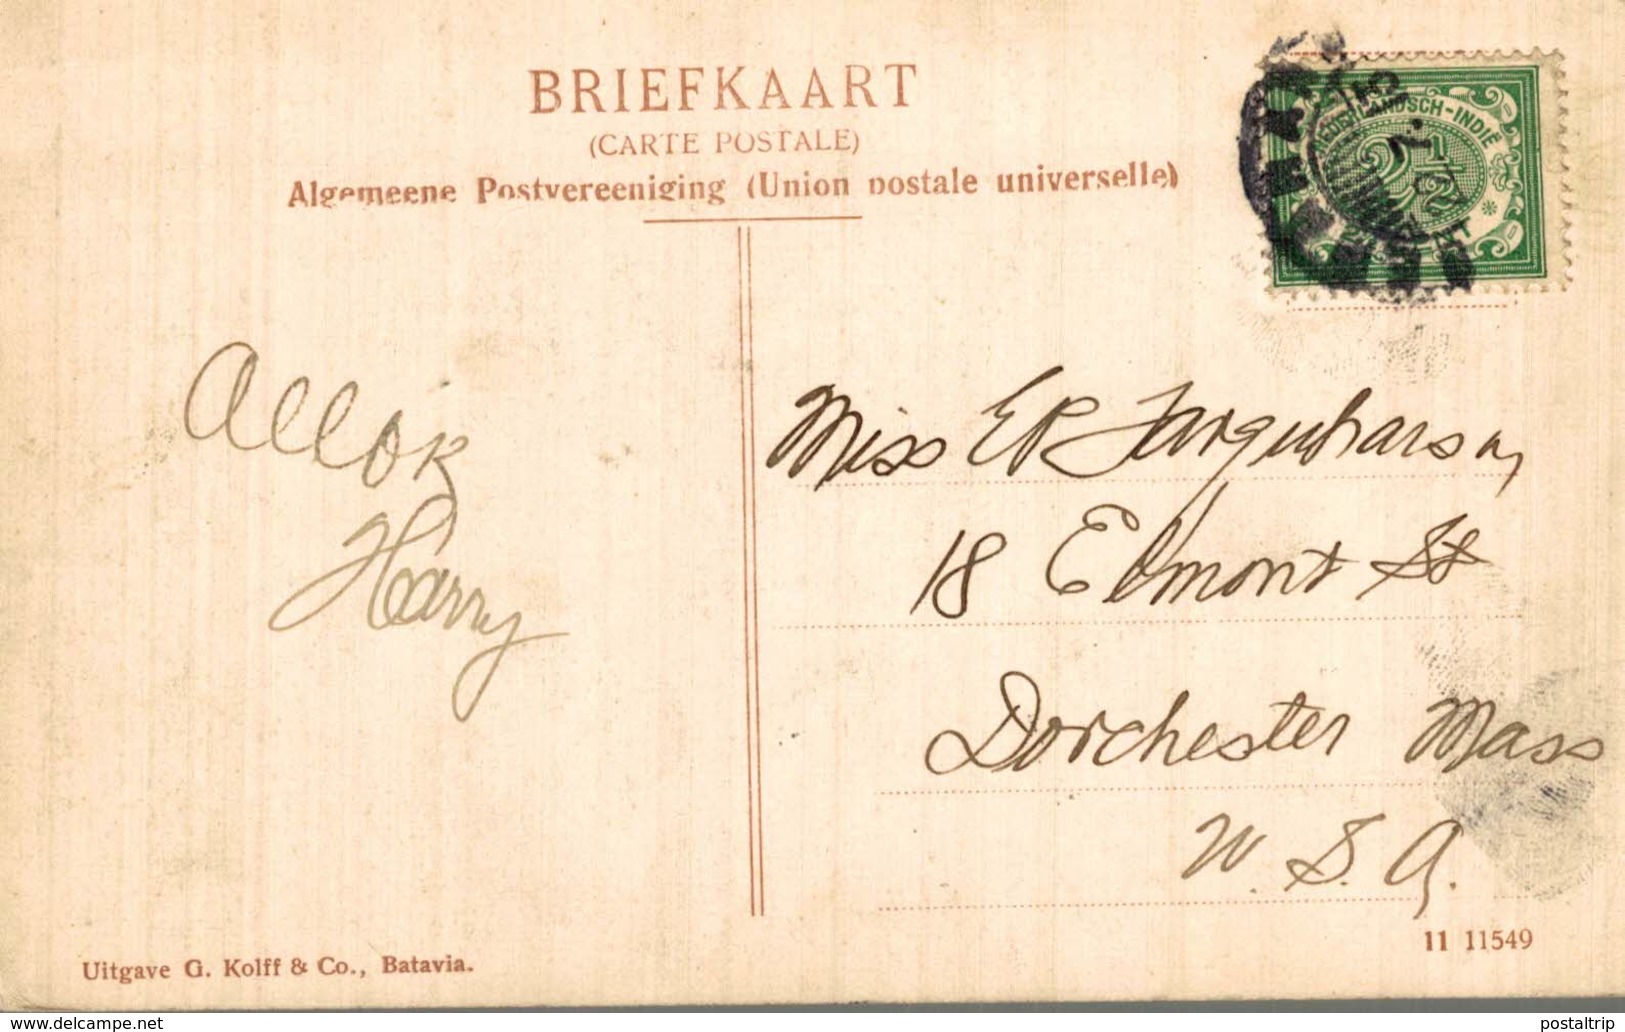 BRIEFKAART
(CARTE POSTALE)
Algemeene Postvereeniging (Union postale universelle)
NEDERLANDSCH-INDIË
2½
CENT
All OK
Harry
Miss E P Farquharson,
18 Elmont St
Dorchester Mass
U.S.A.
11 11549
Uitgave G. Kolff & Co., Batavia.
www.delcampe.net
postaltrip